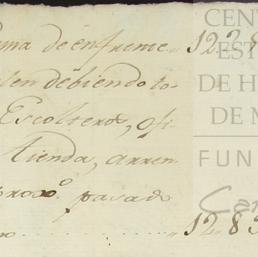 suma de enfrente .. 12.28
deviendo to-
Escolteros, ofi
tienda, arren
proxo. pasado
12.83
CEN
EST
DE H
DE M
FUN
Car